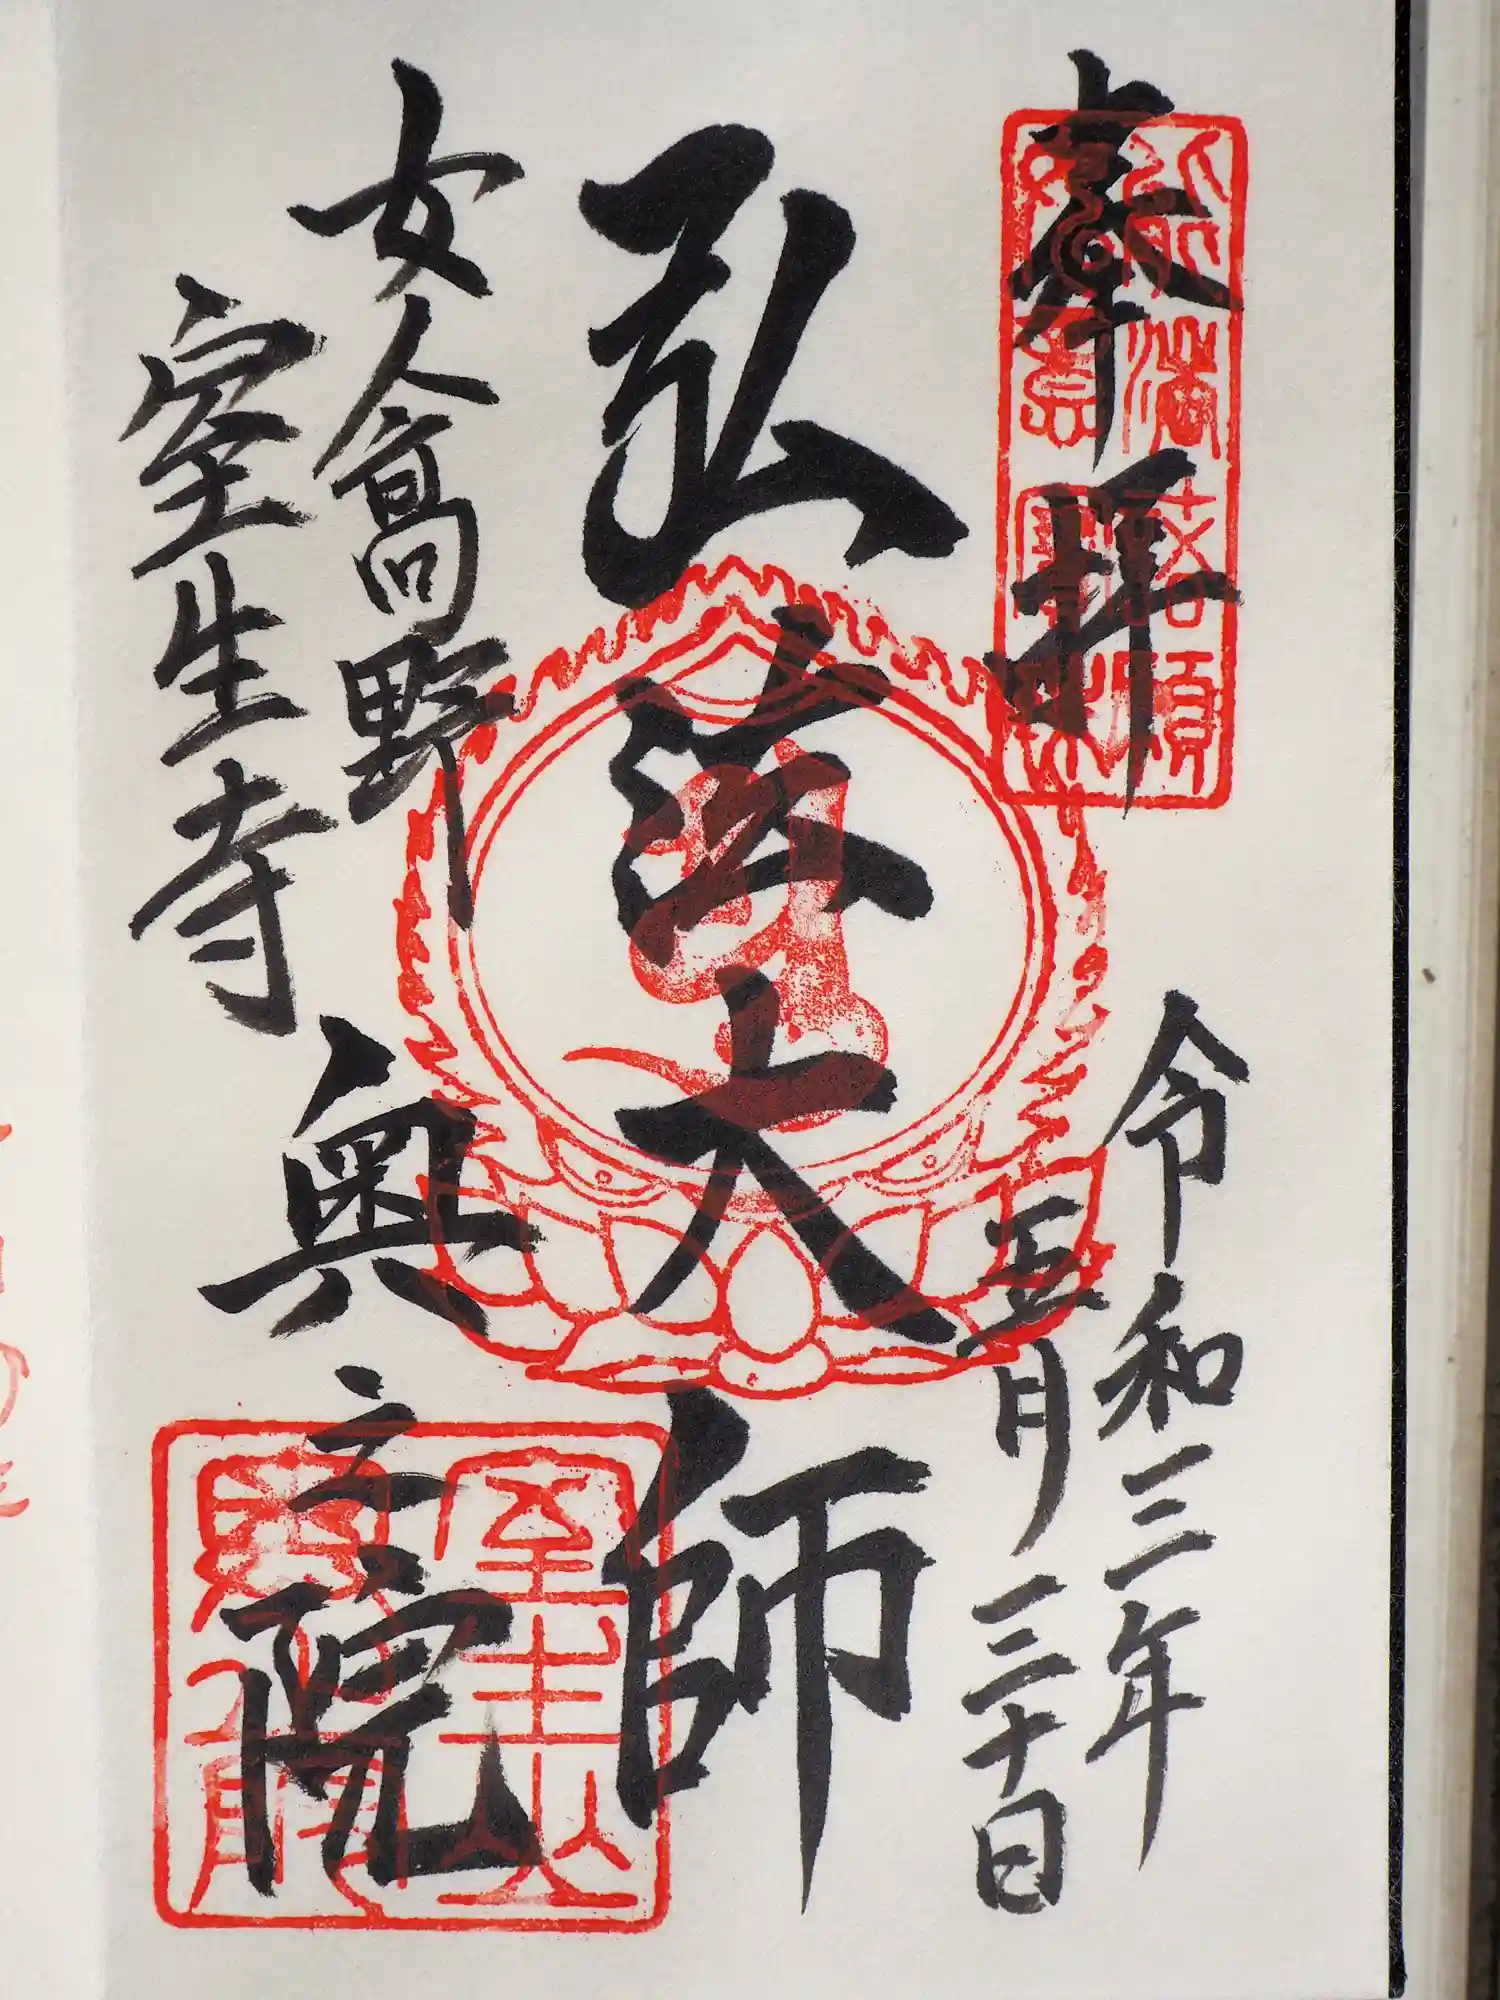 奉拝
令和三年
五月三十日
弘法大師
女人高野
室生寺
奥之院